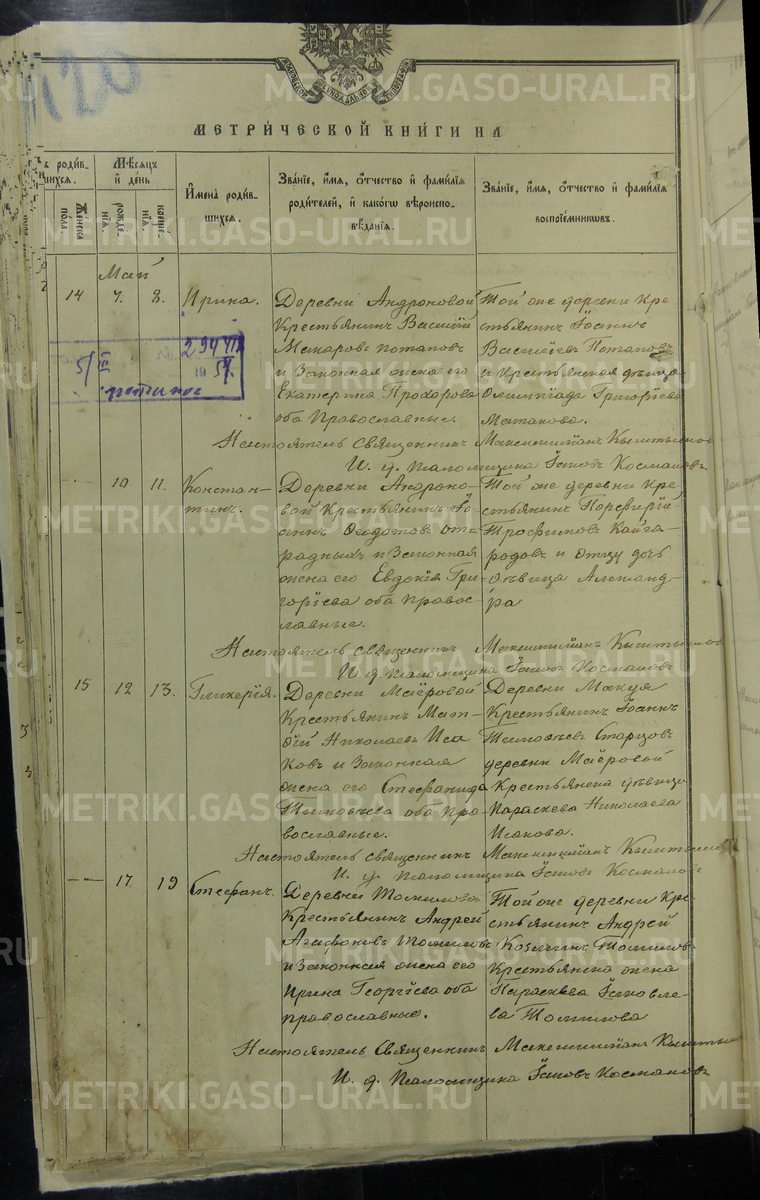 МЕТРИ́ЧЕСКОЙ КНИ́ГИ НА
ъ роди́в-
шихся.
Мѣ́сяцъ
и́ де́нь
И́мена роди́в-
шихся.
Зва́нїе, и́мя, о́тчество и́ фами́лїя
роди́телей, и́ како́гѡ вѣроиспо-
вѣ́данїя.
Зва́нїе, и́мя, о́тчество и́ фами́лїя
воспрїе́мникѡвъ.
Же́нска
пола.
рожде́-
нїя.
креще́-
нїя.
Май
14 7. 8. Ирина.
Деревни Андроновой
Крестьянинъ Василій
Макаровъ Потаповъ
и Законная жена его
Екатерина Прохорова
оба Православные.
Той же деревни Кре-
стьянинъ Іоаннъ
Василіевъ Потаповъ
и Крестьянская дѣвица
Олимпіада Григоріева
Настоятель священникъ Максиміліанъ
И. д. Псаломщика Іаковъ Космаковъ
10 11. Констан-
тинъ.
Деревни Андроно-
вой Крестьянинъ Іо-
аннъ Ѳеодотовъ От-
радныхъ и Законная
жена его Евдокія Гри-
горіева оба Правос-
лавные.
Той же деревни Кре-
стьянинъ Порфирій
Трофимовъ Кайга-
родовъ и отцу дочь
дѣвица Александ-
ра
Настоятель священникъ Максиміліанъ
И д Псаломщика Іаковъ Космаковъ
15 12 13. Гликерія.
Деревни Маіёровой
Крестьянинъ Мат-
ѳій Николаевъ Иса
ковъ и Законная
жена его Стефанида
Тимоѳѣева оба Пра-
вославные.
Деревни
Крестьянинъ Іоаннъ
Тимоѳѣевъ Старцовъ
деревни Маіёровой
Крестьянска дѣвица
Параскева Николаева
Исакова.
Настоятель священникъ Максиміліанъ
И. д. Псаломщика Іаковъ Космаковъ
17. 19 Стефанъ.
Деревни Томилова
Крестьянинъ Андрей
Агафоновъ Томиловъ
и Законная жена его
Ирина Георгіева оба
православные.
Той же деревни Кре-
стьянинъ Андрей
Козминъ Томиловъ
Крестьянска жена
Параскева Іаковле-
ва Томилова
Настоятель Священникъ Максиміліанъ
И. д. Псаломщика Іаковъ Космаковъ
METRIKI.GASO-URAL.RU